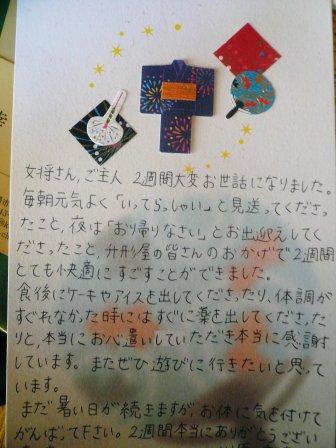 女将さん、ご主人 2週間大変お世話になりました。
毎朝元気よく「いってらっしゃい」と見送ってくださっ
たこと、夜は「お帰りなさい」とお出迎えしてく
ださったこと、升形屋の皆さんのおかげで2週間
とても快適にすごすことができました。
食後にケーキやアイスを出してくださったり、体調が
すぐれなかった時にはすぐに薬を出してくださった
りと、本当にお心遣いしていただき本当に感謝
しています。またぜひ遊びに行きたいと思って
います。
まだ暑い日が続きますが、お体に気を付けて
がんばって下さい。2週間本当にありがとうござい